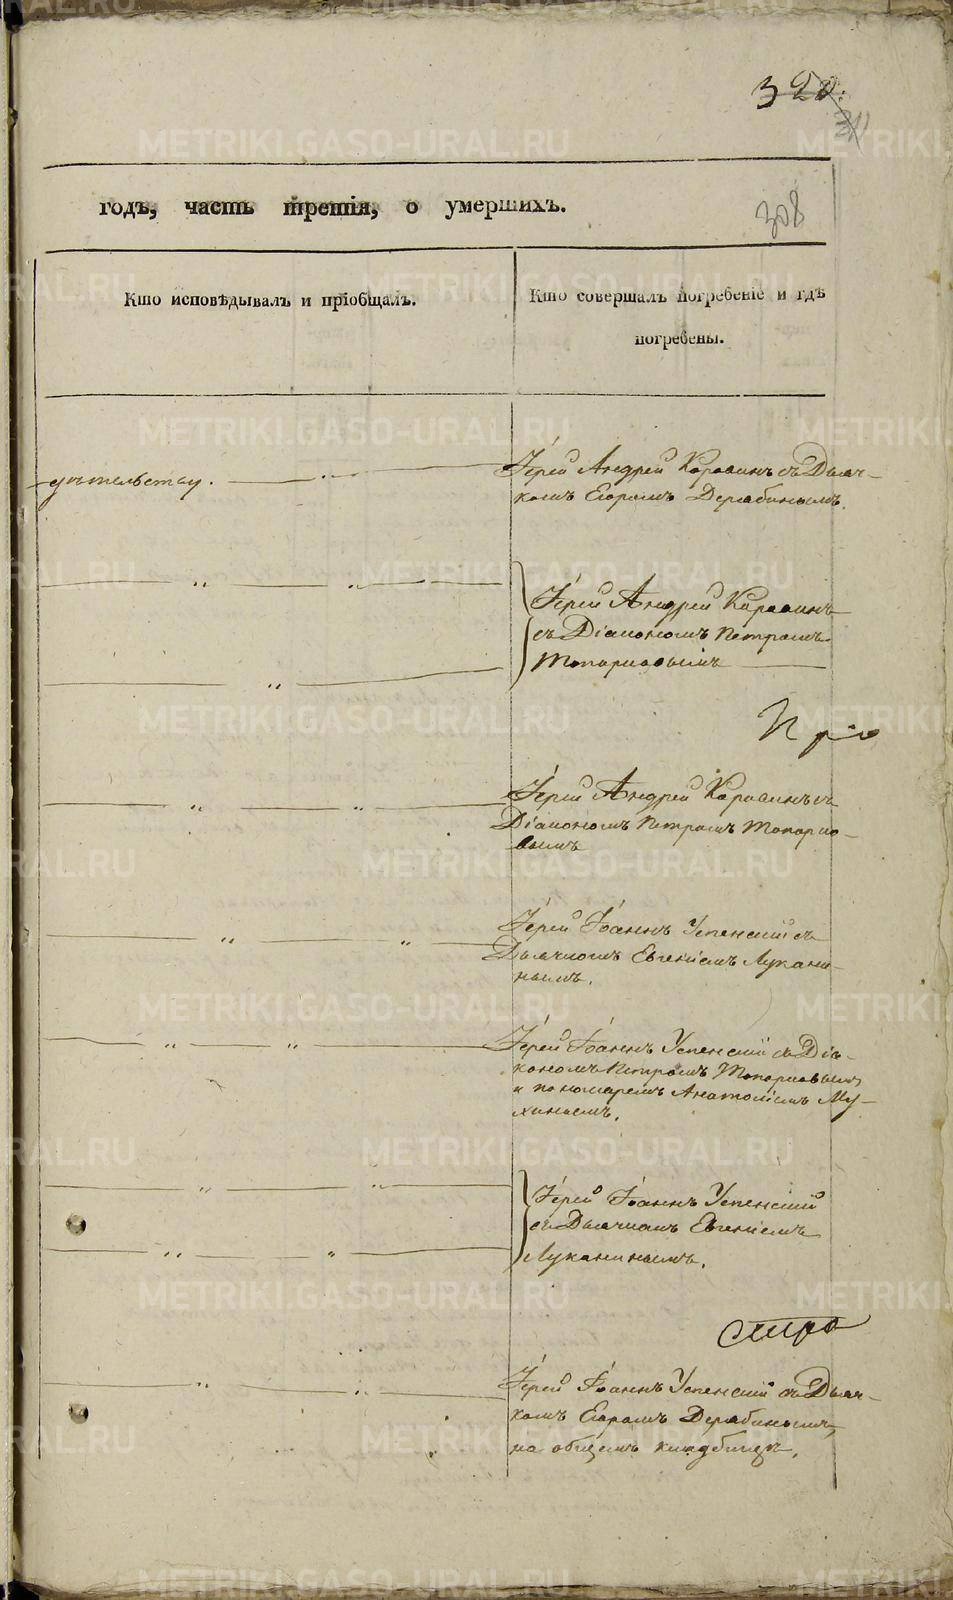 320.
308
годъ, часть третія, о умершихъ.
Кто исповѣдывалъ и пріобщалъ.
Кто совершалъ погребеніе и гдѣ
погребены.
Іерей Андрей Коровинъ съ Дьяч-
дѣтельству.
комъ Егоромъ Дерябинымъ.
Іерей Андрей Коровинъ
съ Діакономъ Петромъ
Топорковымъ
Іерей Андрей Коровинъ съ
Діакономъ Петромъ Топорко-
вымъ
Іерей Іоаннъ Успенскій съ
Дьячкомъ Евгеніемъ Лукани-
нымъ.
Іерей Іоаннъ Успенскій съ Діа-
кономъ Петромъ Топорковымъ
и пономаремъ Анатоліемъ Му-
хинымъ.
Іерей Іоаннъ Успенскій
съ Дьячкомъ Евгеніемъ
Луканинымъ.
Іерей Іоаннъ Успенскій съ Дьяч-
комъ Егоромъ Дерябинымъ,
на общемъ кладбищѣ.
METRIKI.GASO-URAL.RU